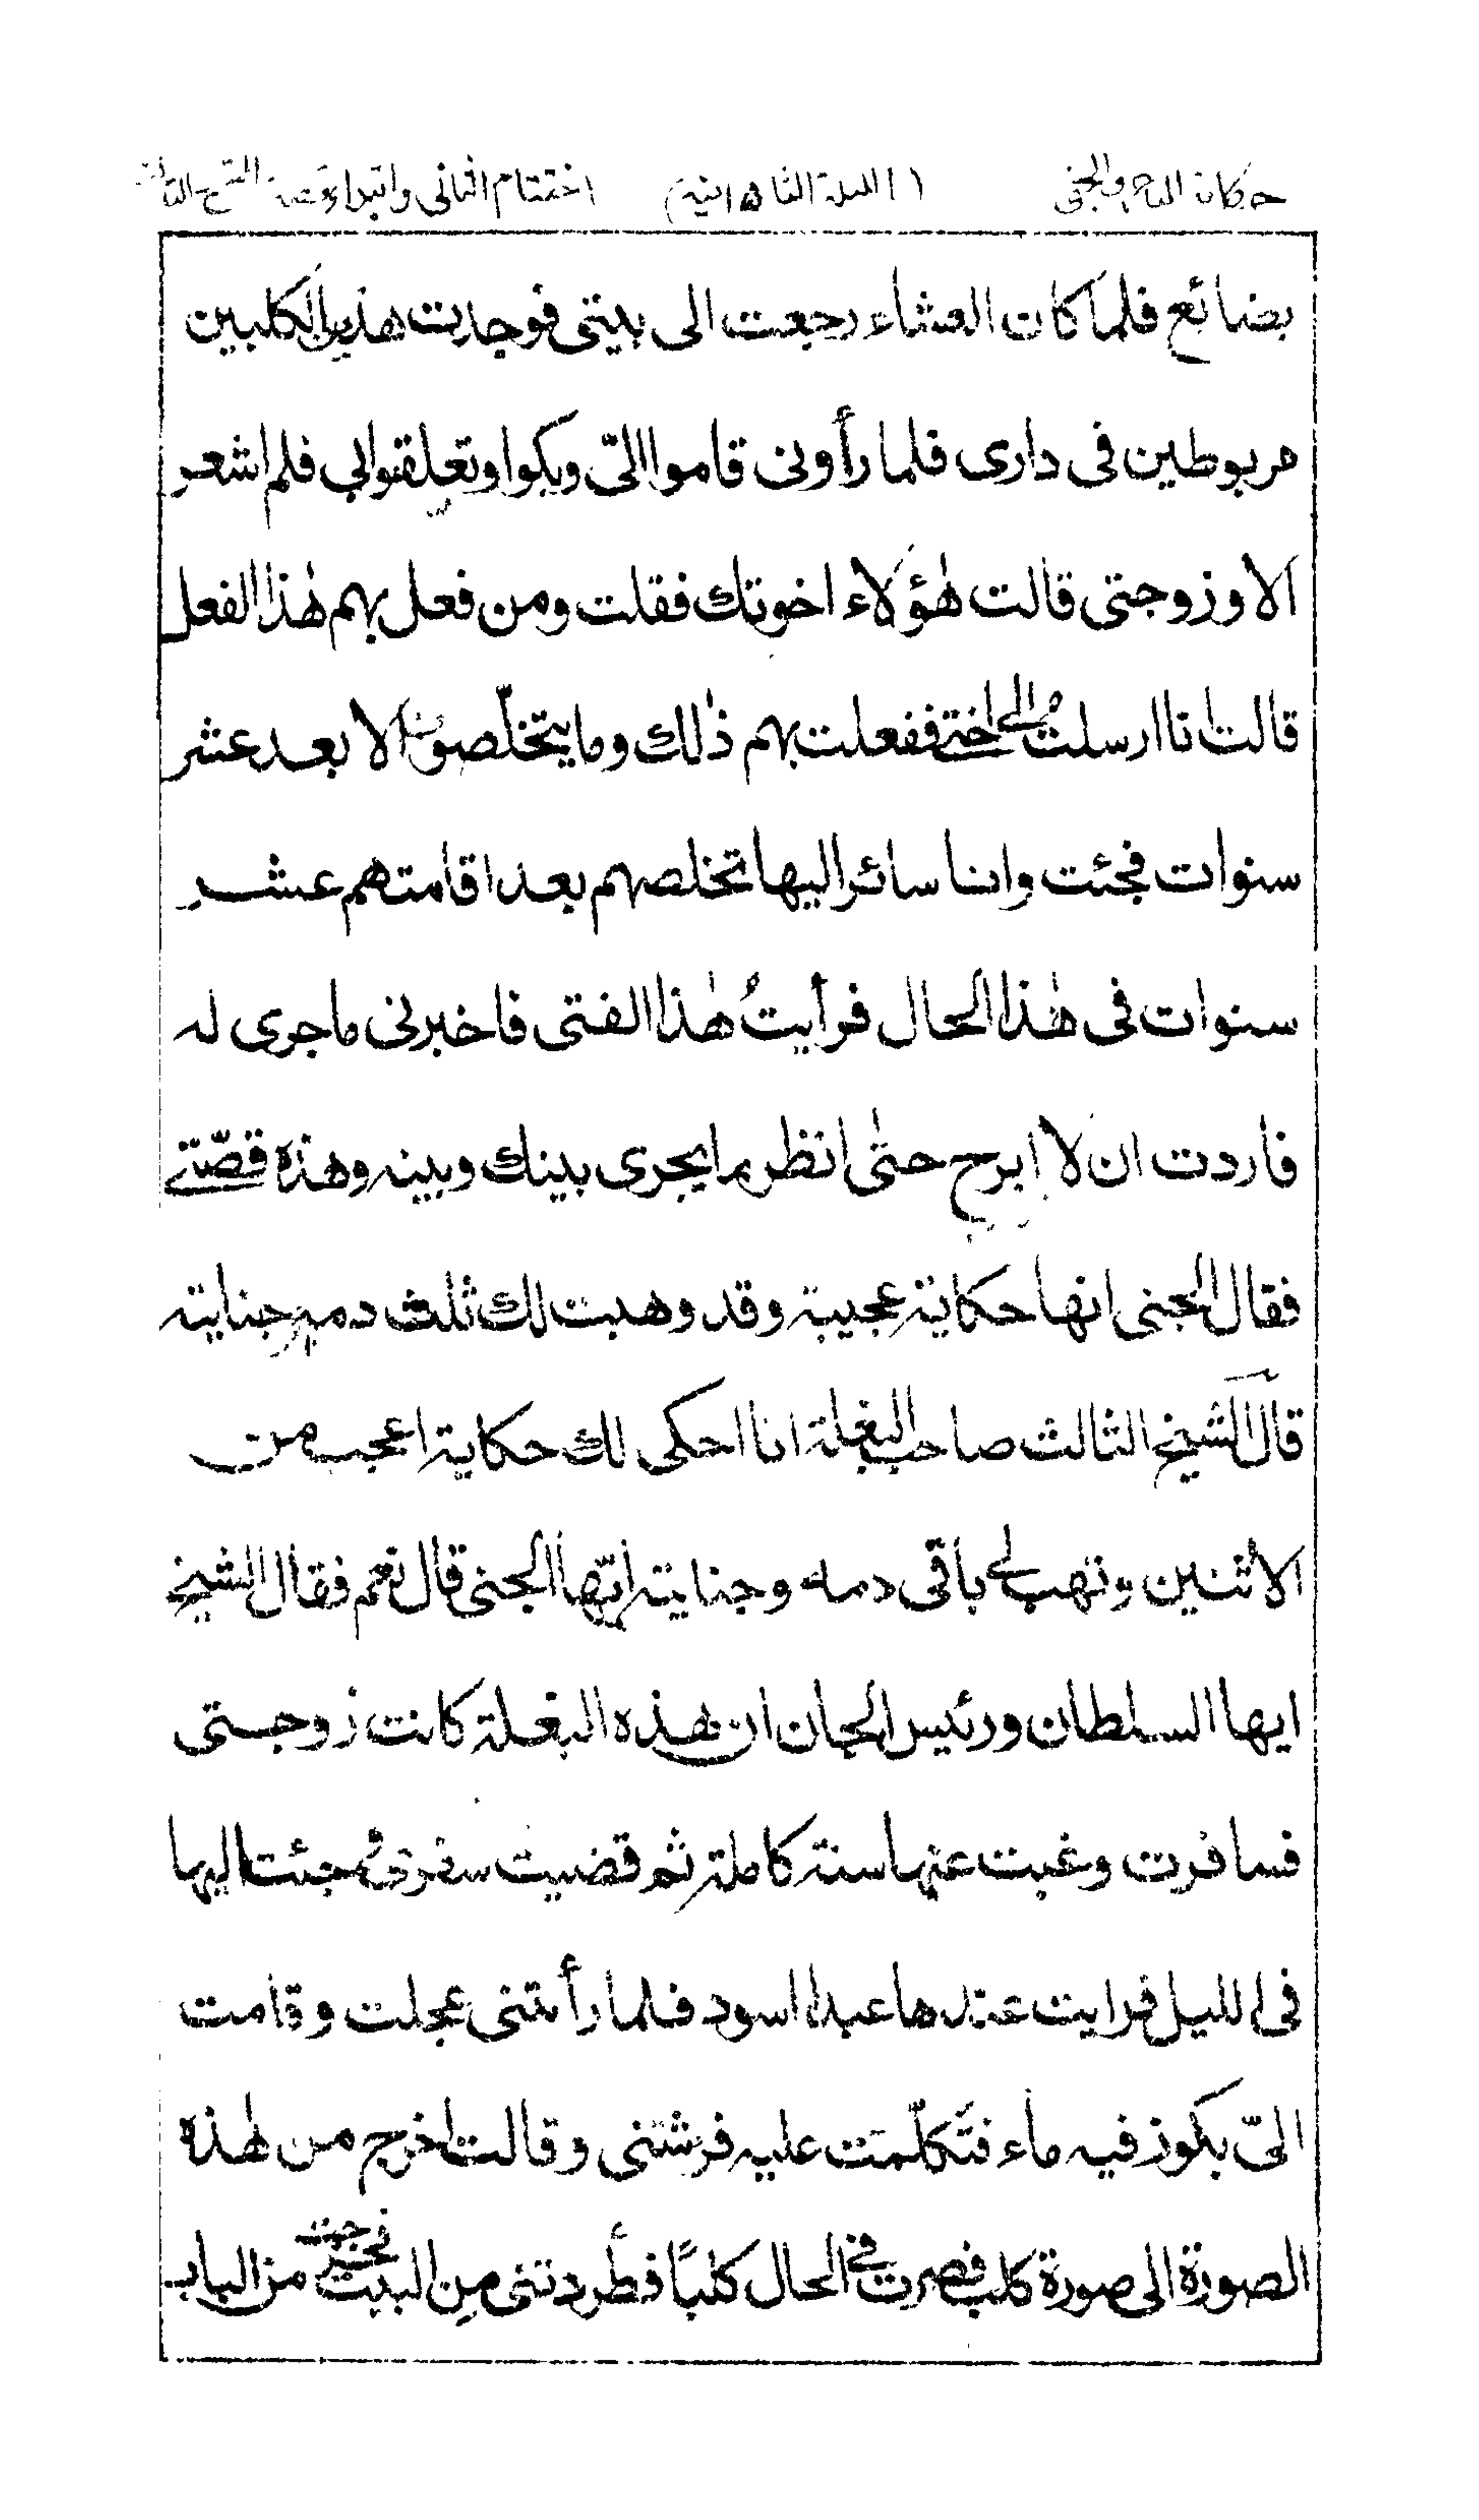 حكاية التاجر والجني (الليلة الثانية) اختتام الثاني وابتداء قصة الشيخ الثالث
بضائع فلما كان العشاء رجعت الى بيتى فوجدت هذين الكلبين
مربوطين فى دارى فلما رأونى قاموا الىّ وبكوا وتعلقوا بي فلم اشعر
الا وزوجتى قالت هٰؤلاء اخوتك فقلت ومن فعل بهم هٰذا الفعل
قالت انا ارسلتُ الى اختے ففعلت بهم ذٰلك وما يتخلّصون الا بعد عشر
سنوات فجئت وانا سائر اليها تخلصهم بعد اقامتهم عشر
سنوات فى هٰذا الحال فرأيتُ هٰذا الفتى فاخبرنى ما جرى له
فاردت ان لا ابرح حتٰى انظر ما يجرى بينك وبينه وهذه قصّتے
فقال الجنى انها حكاية عجيبة وقد وهبت لك ثلث دمه وجنايته
قال الشيخ الثالث صاحب البغلة انا احكى لك حكاية اعجب من
الاثنين وتهب لے باقى دمه وجنايته ايّها الجنى قال نعم فقال الشيخ
ايها السلطان ورئيس الجان ان هذه البغلة كانت زوجتى
فسافرت وغبت عنها سنة كاملة ثم قضيت سفرى وجئت اليها
فى الليل فرايت عندها عبدا اسود فلما رأتنى عجلت وقامت
الىّ بكوز فيه ماء فتَكلّمَت عليه فرشتنى وقالت اخرج من هٰذه
الصورة الى صورة كلب فصرت فى الحال كلبًا فطردتنى مِن البيت فخرجت من الباب